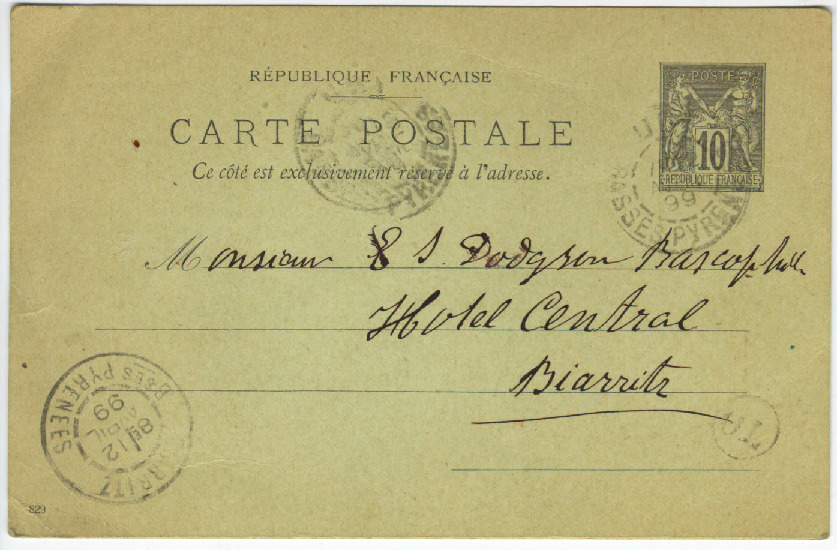 RÉPUBLIQUE FRANÇAISE
CARTE POSTALE
Ce côté est exclusivement réservé à l'adresse.
POSTE
10
RÉPUBLIQUE FRANÇAISE
99
BASSES PYRÉN
PYRÉNÉES
Monsieur E S. Dodgson Bascophile
Hotel Central
Biarritz
BIARRITZ
8E 12
AVRIL
99
BSES PYRENEES
OL
829